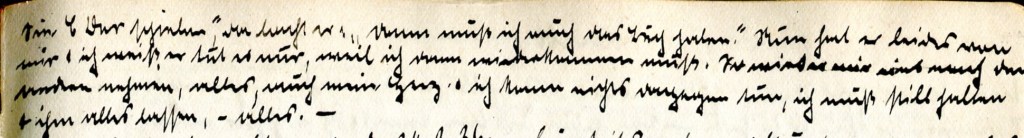 Sie € Der schieben", da lacht er: „dann muß ich auch das Buch haben." Nun hat er beides von
mir & ich weiß, er tut es nur, weil ich dann wiederkommen muß. So wird er mir eins nach dem
andern nehmen, alles, auch mein Herz. & ich kann nichts dagegen tun, ich muß still halten
& ihm alles lassen, – alles. –